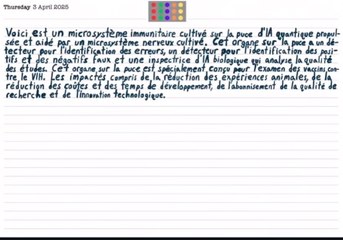 Thursday 3 April 2025
Voici est un microsystème immunitaire cultivé sur la puce d'IA quantique propul-
sée et aidé par un microsystème nerveux cultivé. Cet organe sur la puce a un dé-
tecteur pour l'identification des erreurs, un détecteur pour l'identification des posi-
tifs et des négatifs faux et une inspectrice d'IA biologique qui analyse la qualité
des études. Cet organe sur la puce est spécialement conçu pour l'examen des vaccins con-
tre le VIH. Les impactés compris de la réduction des expériences animales, de la
réduction des coûtes et des temps de développement, de l'abonnissement de la qualité de
recherche et de l'innovation technologique.